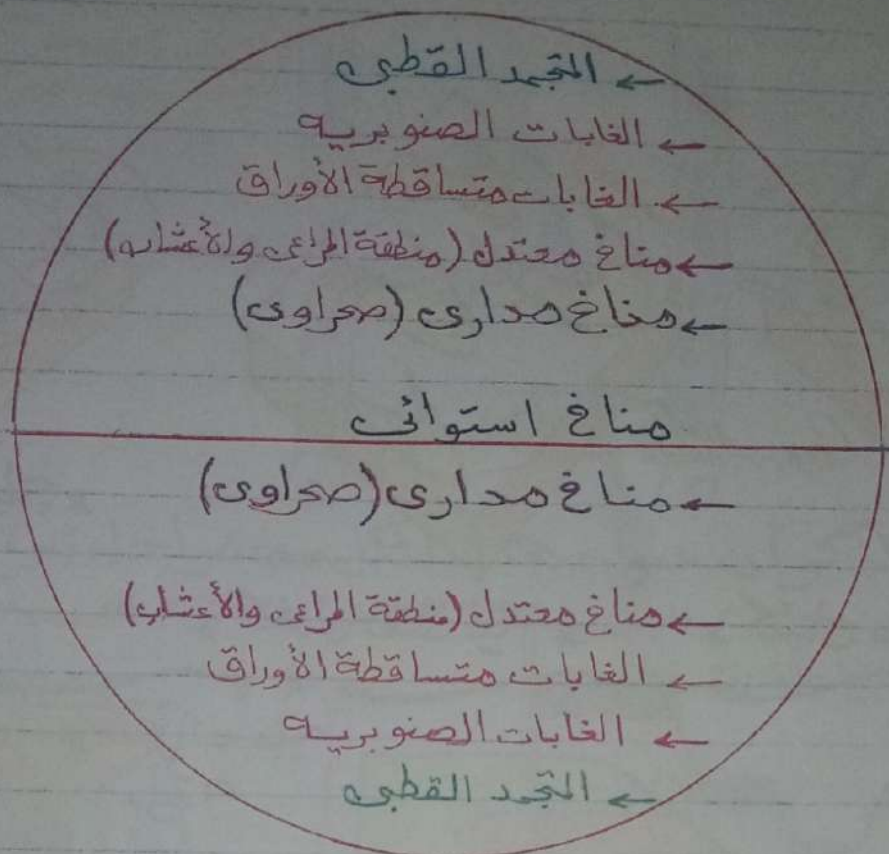 ← المتجمد القطبى
← الغابات الصنوبريه
← الغابات متساقطة الأوراق
← مناخ معتدل (منطقة المراعى والأعشاب)
← مناخ مدارى (صحراوى)
مناخ استوائى
← مناخ مدارى (صحراوى)
← مناخ معتدل (منطقة المراعى والأعشاب)
← الغابات متساقطة الأوراق
← الغابات الصنوبريه
← المتجمد القطبى